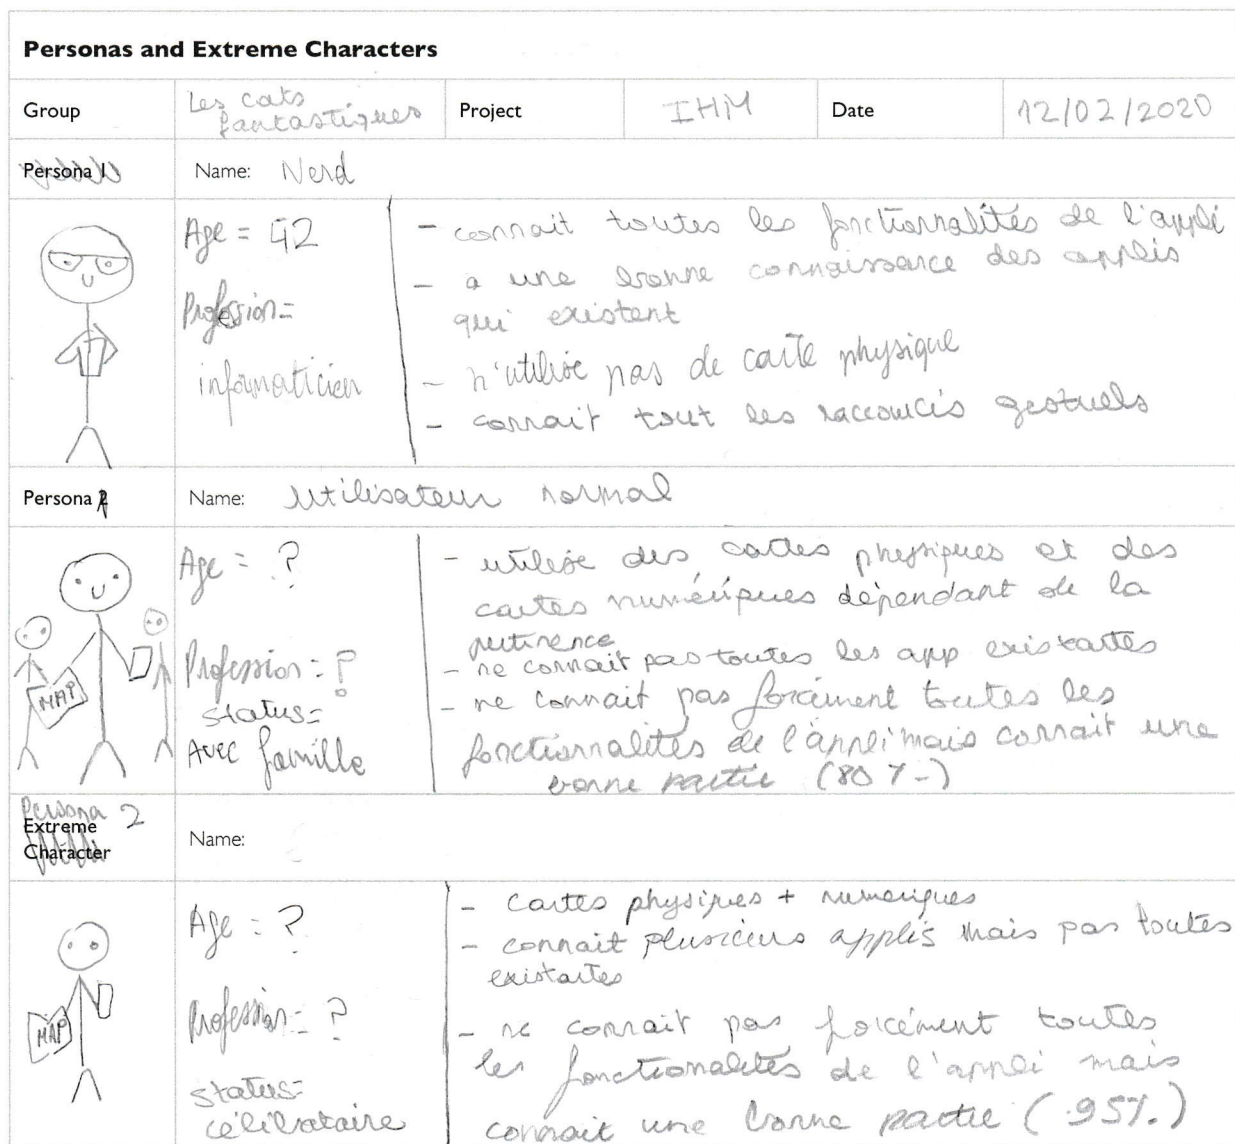 Personas and Extreme Characters
Group Les cats fantastiques Project IHM Date 12/02/2020
Persona 1 Name: Nerd
Age = 42
Profession =
informaticien
- connait toutes les fonctionnalités de l'appli
- a une bonne connaissance des applis
qui existent
- n'utilise pas de carte physique
- connait tout les raccourcis gestuels
Persona 1 Name: Utilisateur normal
MAP
Age = ?
Profession = ?
status =
Avec famille
- utilise des cartes physiques et des
cartes numériques dépendant de la
pertinence
- ne connait pas toutes les app existantes
- ne connait pas forcément toutes les
fonctionnalités de l'appli mais connait une
bonne partie (80 %)
Persona 2
Extreme
Character Name:
MAP
Age = ?
Profession = ?
status =
célibataire
- cartes physiques + numériques
- connait plusieurs applis mais pas toutes
existantes
- ne connait pas forcément toutes
les fonctionalités de l'appli mais
connait une bonne partie (95%.)